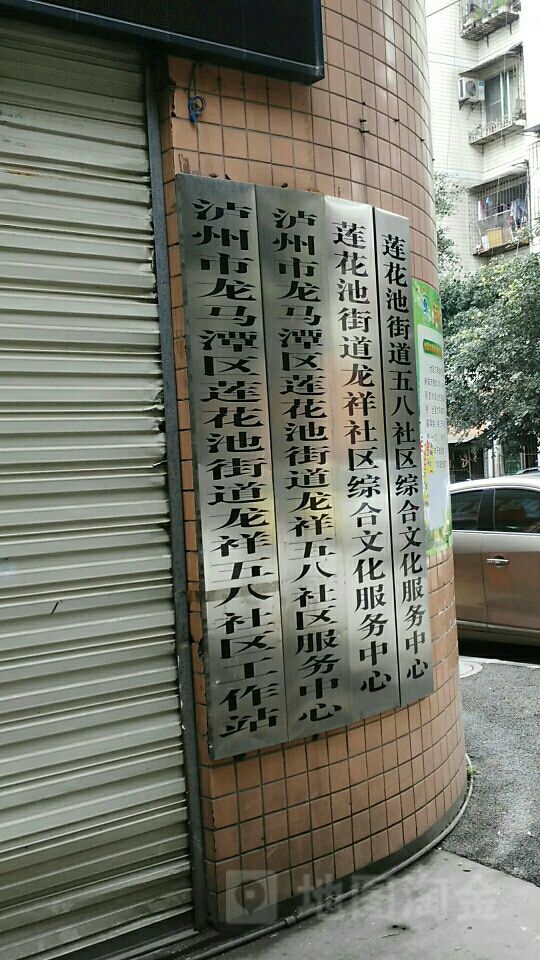 泸州市龙马潭区莲花池街道龙祥五八社区工作站
泸州市龙马潭区莲花池街道龙祥五八社区服务中心
莲花池街道龙祥社区综合文化服务中心
莲花池街道五八社区综合文化服务中心
地图淘金